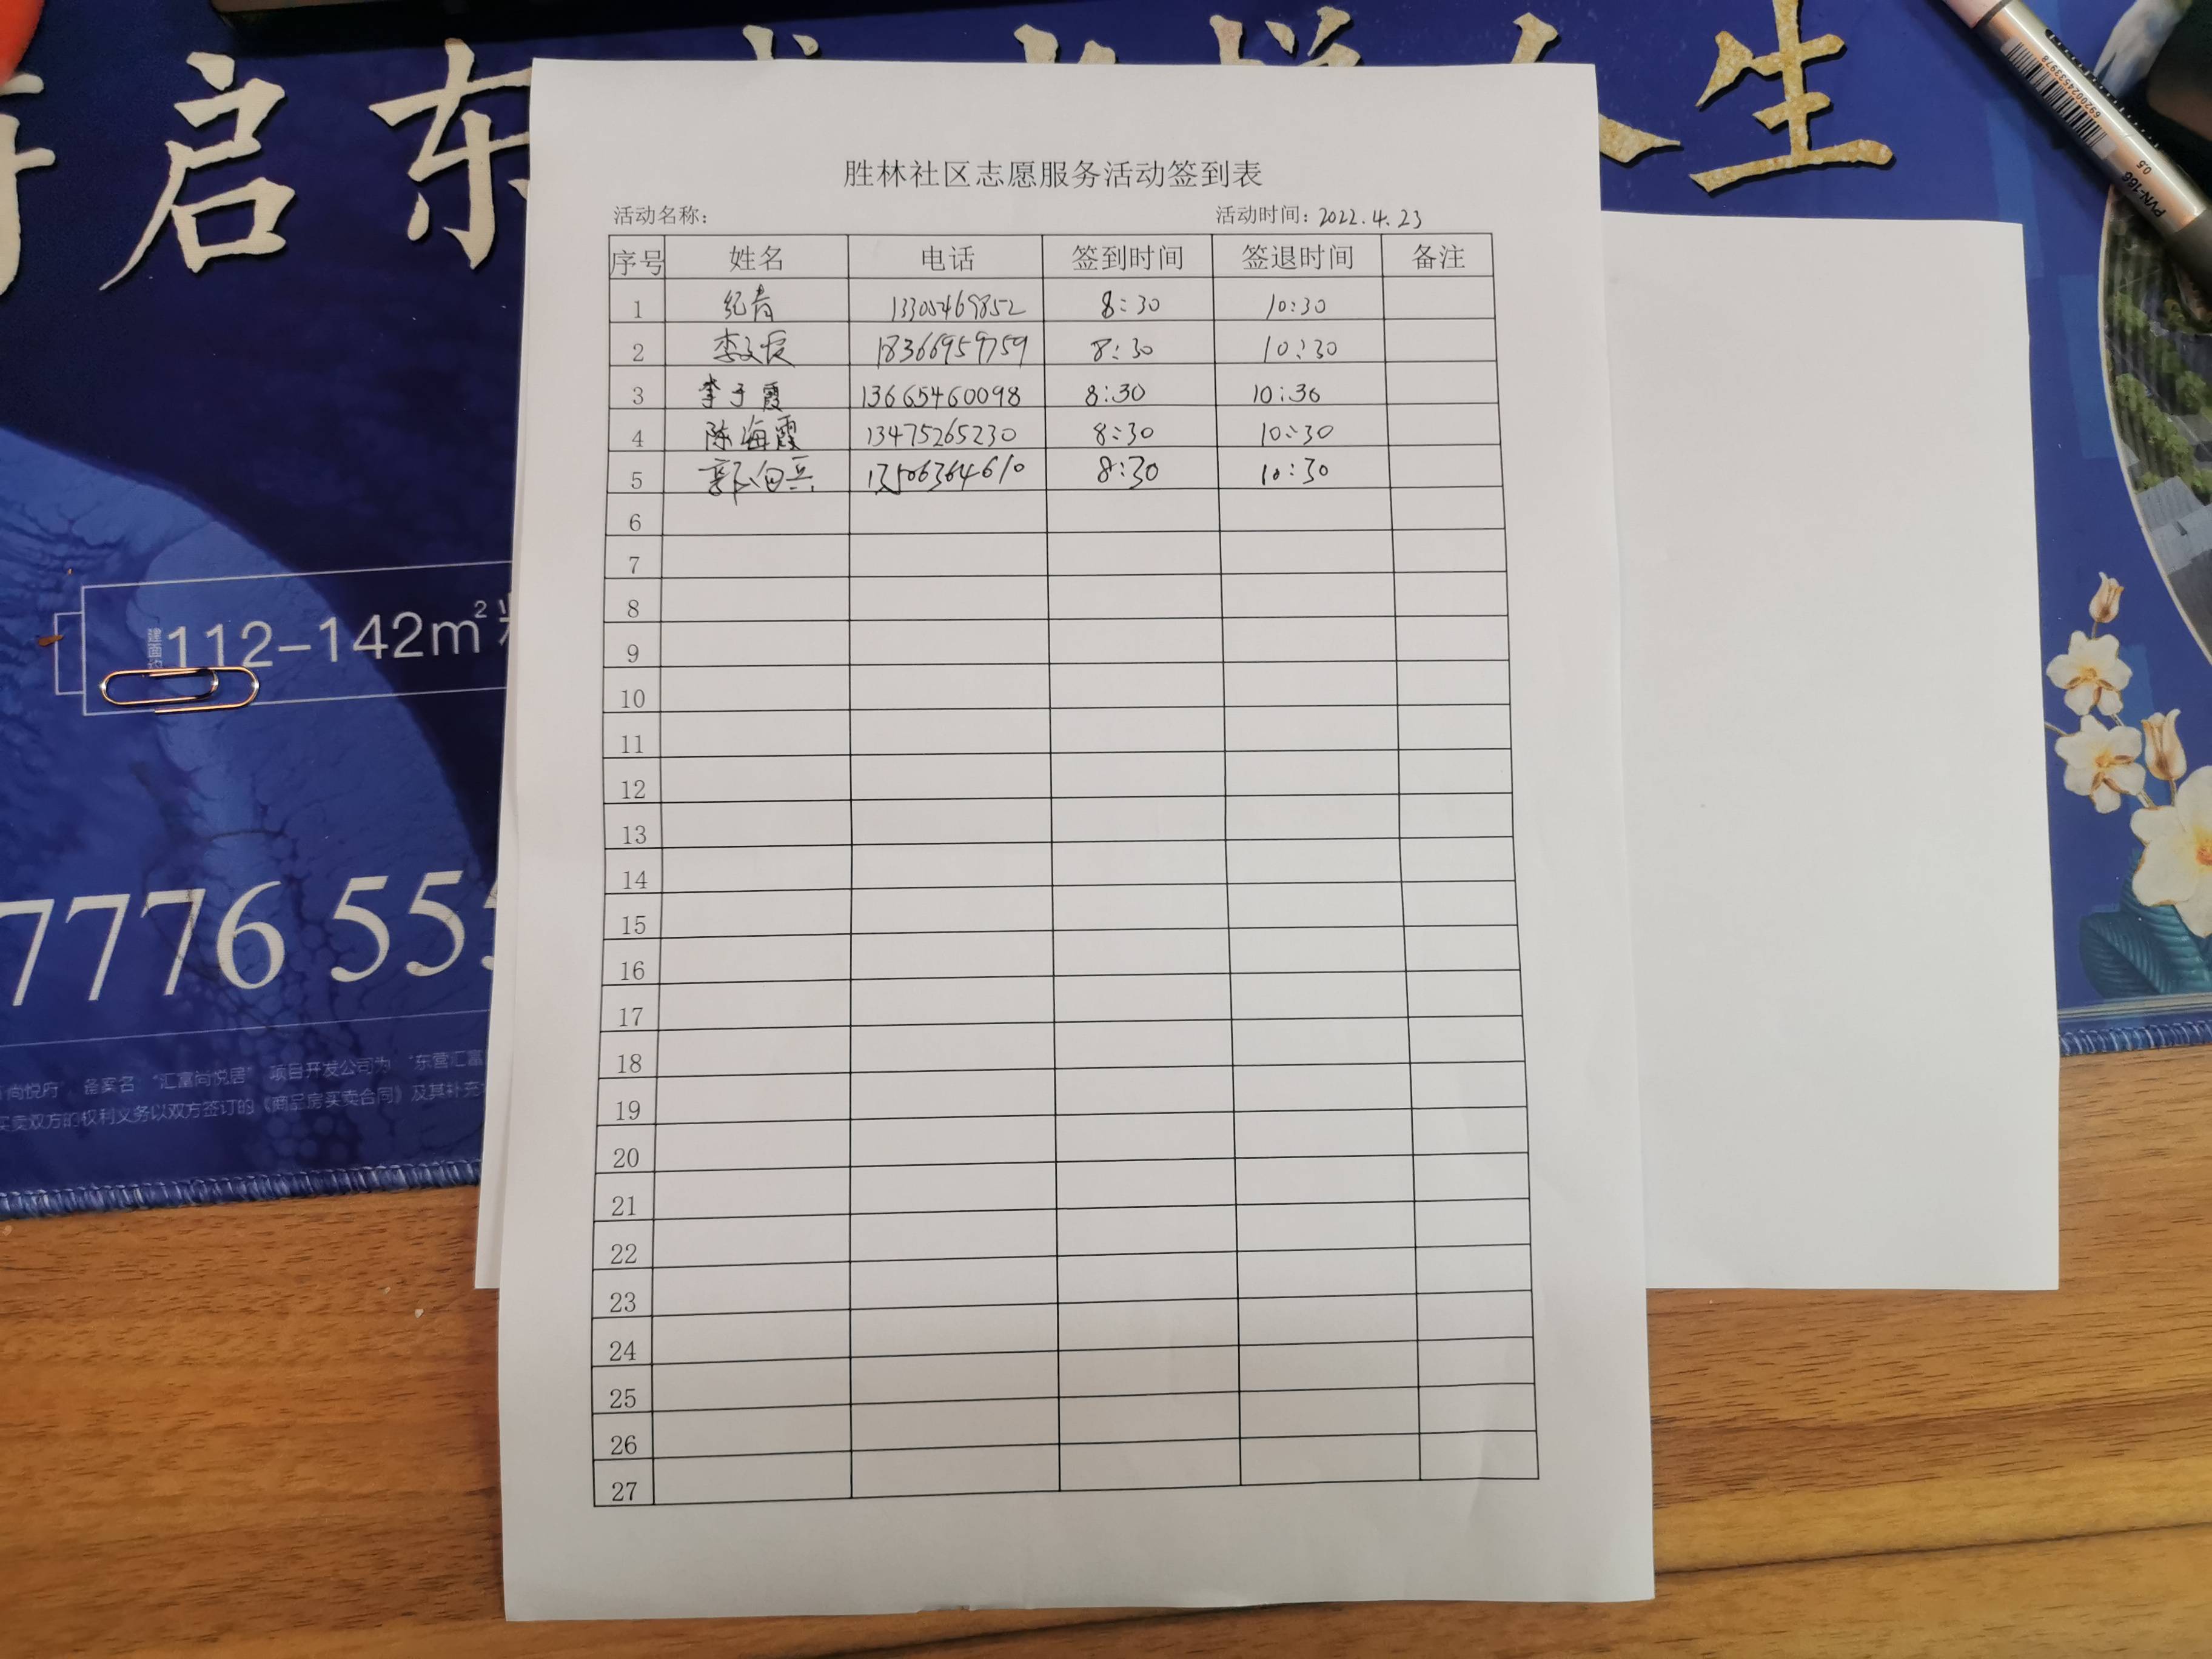 启东
生
6920024533978
PVN-166
0.5
建面约112-142m²
7776 555
尚悦府" 备案名:"汇富尚悦居" 项目开发公司为 "东营汇富
买卖双方的权利义务以双方签订的《商品房买卖合同》及其补充
胜林社区志愿服务活动签到表
活动名称: 活动时间: 2022.4.23
序号 姓名 电话 签到时间 签退时间 备注
1 纪青 13305469852 8:30 10:30
2 李文霞 18366959759 8:30 10:30
3 李于霞 13665460098 8:30 10:30
4 陈海霞 13475265230 8:30 10:30
5 郭向兵 13506364610 8:30 10:30
6
7
8
9
10
11
12
13
14
15
16
17
18
19
20
21
22
23
24
25
26
27